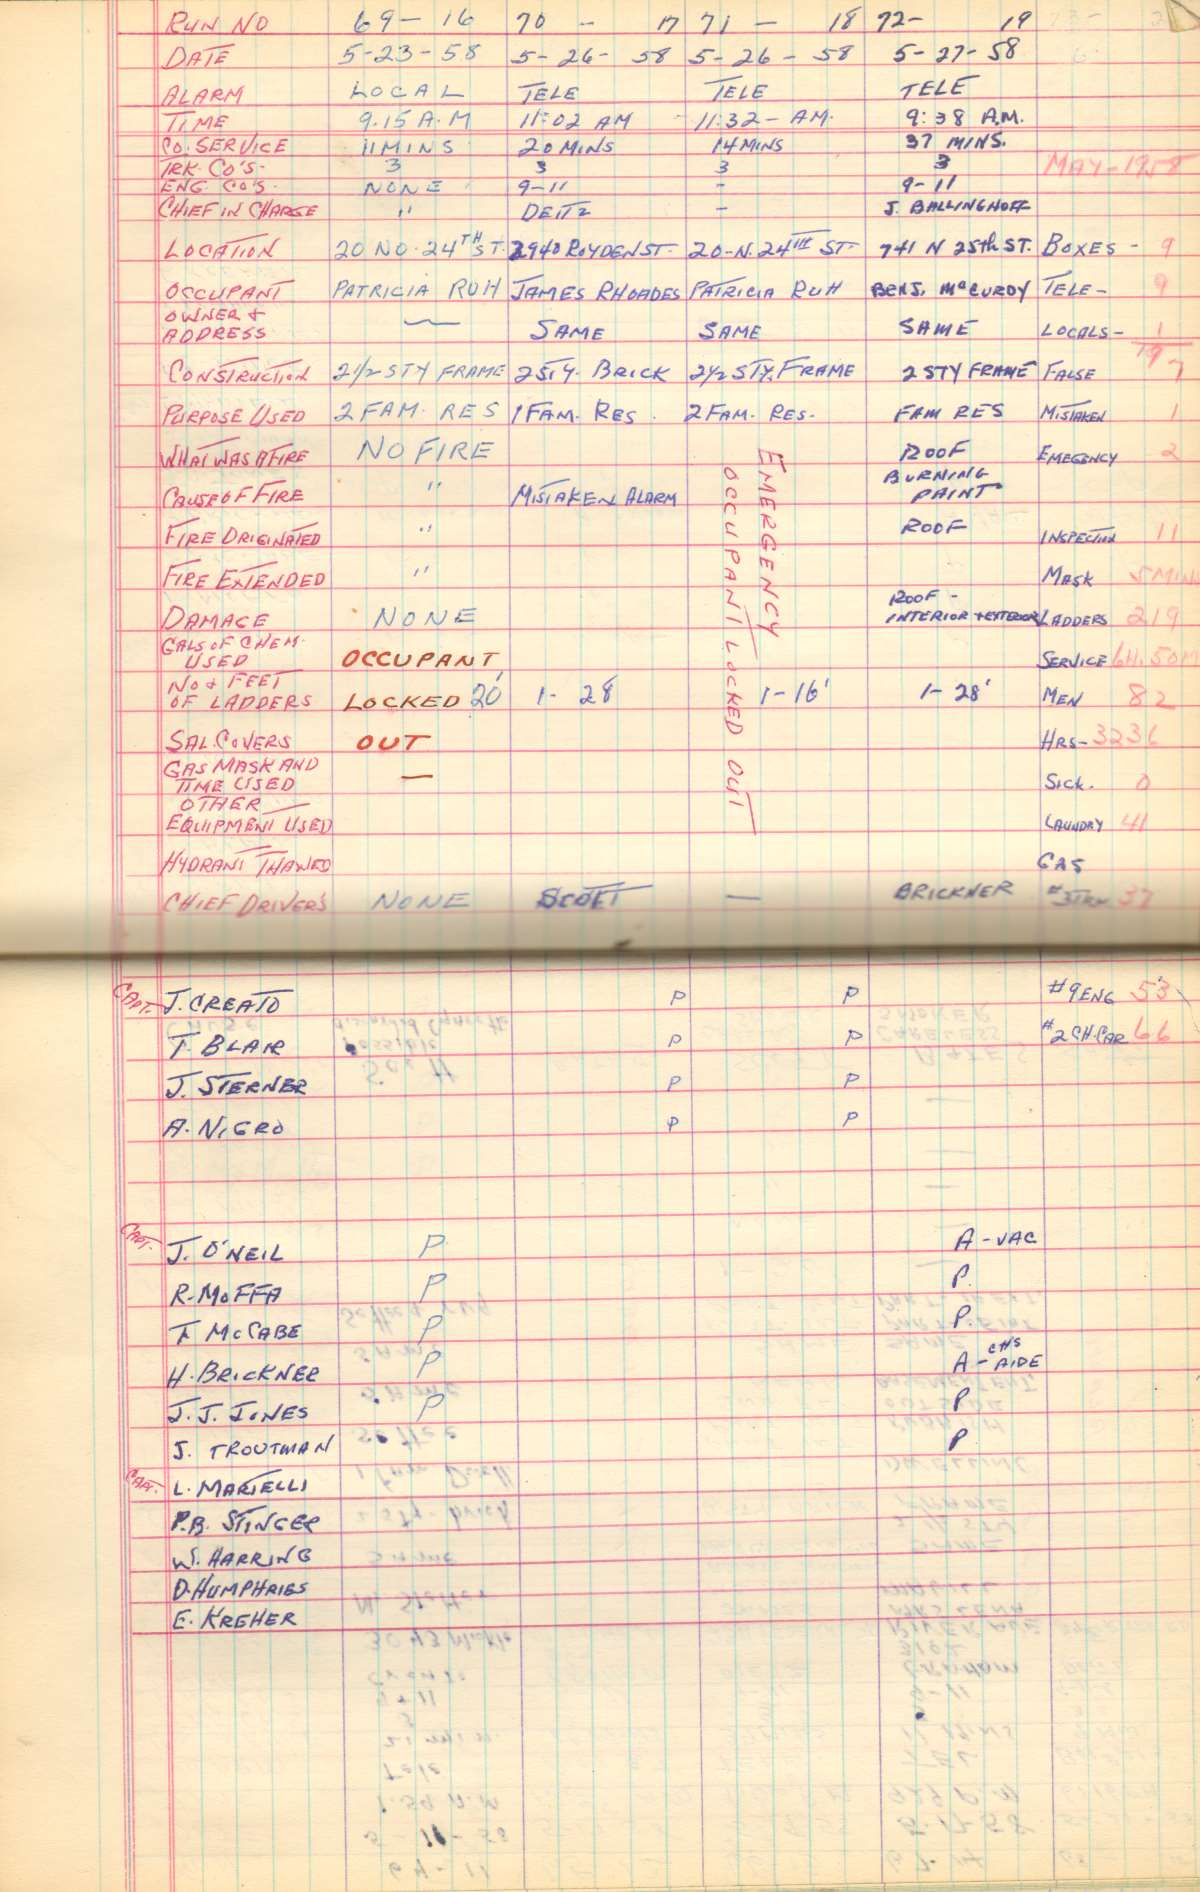 RUN NO 69 - 16 70 - 17 71 - 18 72- 19
DATE 5-23-58 5-26-58 5-26-58 5-27-58
ALARM LOCAL TELE TELE TELE
TIME 9.15 A.M 11:02 AM 11:32-AM. 9:38 A.M.
CO. SERVICE 11 MINS 20 MINS 14 MINS 37 MINS.
TRK. CO'S- 3 3 3 3 MAY-1958
ENG. CO'S. NONE 9-11 - 9-11
CHIEF IN CHARGE " DEITZ - J. BALLINGHOFF
LOCATION 20 NO. 24TH ST. 2940 ROYDEN ST- 20-N. 24TH ST- 741 N 25th ST. BOXES - 9
OCCUPANT PATRICIA RUH JAMES RHOADES PATRICIA RUH BENJ. McCURDY TELE- 9
OWNER &
ADDRESS SAME SAME SAME LOCALS- 1
19
CONSTRUCTION 2 1/2 STY FRAME 2 STY. BRICK 2 1/2 STY. FRAME 2 STY FRAME FALSE 7
PURPOSE USED 2 FAM. RES 1 FAM. RES. 2 FAM. RES. FAM RES MISTAKEN 1
WHAT WAS A FIRE NO FIRE ROOF EMEGENCY 2
CAUSE OF FIRE " MISTAKEN ALARM BURNING
PAINT
EMERGENCY
OCCUPANT LOCKED OUT
FIRE ORIGINATED " ROOF INSPECTION 11
FIRE EXTENDED " MASK 5 MIN
DAMAGE NONE ROOF -
INTERIOR + EXTERIOR LADDERS 219
GALS OF CHEM.
USED OCCUPANT SERVICE 6H. 50M
NO & FEET
OF LADDERS LOCKED 20' 1- 28 1-16' 1-28' MEN 82
SAL. COVERS OUT HRS- 3236
GAS MASK AND
TIME USED — SICK. 0
OTHER
EQUIPMENT USED LAUNDRY 41
HYDRANT THAWED GAS
CHIEF DRIVER'S NONE SCOTT — BRICKNER #3TRK 37
CAPT. J. CREATO P P #9 ENG 53
T. BLAIR P P #2 CH. CAR 66
J. STERNER P P
A. NIGRO P P
CAPT. J. O'NEIL P A-VAC
R. MOFFA P P.
F McCABE P P.
H. BRICKNER P A-CH'S AIDE
J. J. JONES P P
J. TROUTMAN P
CAPT. L. MARTELLI
P.B. STINGER
W. HARRING
D. HUMPHRIES
E. KREHER